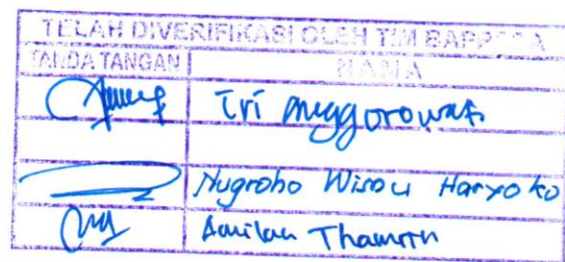 TELAH DIVERIFIKASI OLEH TIM BAPPEDA
TANDA TANGAN NAMA
Tri Anggorowati
Nugroho Wisnu Haryoko
Thamrin